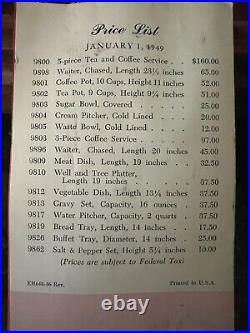 Price List
JANUARY 1, 1949
9800 5-piece Tea and Coffee Service - $160.00
9898 Waiter, Chased, Length 23½ inches 65.00
9801 Coffee Pot, 10 Cups, Height 11 inches 52.00
9802 Tea Pot, 9 Cups, Height 9¾ inches 51.00
9803 Sugar Bowl, Covered - - - 25.00
9804 Cream Pitcher, Gold Lined - - 20.00
9805 Waste Bowl, Gold Lined - - 12.00
9803 3-Piece Coffee Service - - - 97.00
9896 Waiter, Chased, Length 20 inches 45.00
9809 Meat Dish, Length, 19 inches - 32.50
9810 Well and Tree Platter,
Length 19 inches - - - 37.50
9812 Vegetable Dish, Length 13¼ inches 37.50
9813 Gravy Set, Capacity, 16 ounces - 37.50
9817 Water Pitcher, Capacity, 2 quarts - 37.50
9819 Bread Tray, Length, 14 inches - 17.50
9826 Buffet Tray, Diameter, 14 inches - 25.00
9862 Salt & Pepper Set, Height 5¼ inches 16.50
(Prices are subject to Federal Tax)
Printed in U.S.A.